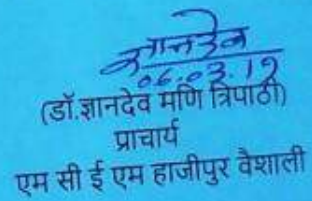 ज्ञानदेव
06.03.19
(डॉ.ज्ञानदेव मणि त्रिपाठी)
प्राचार्य
एम सी ई एम हाजीपुर वैशाली